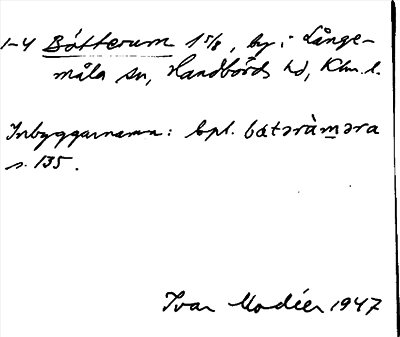 1-4 Båtterum 1 5/8, by i Långe-
måla sn, Handbörds hd, Klm. l.
Inbyggarnamn: bpl. båtəràməra
s. 135.
Ivar Modéer 1947